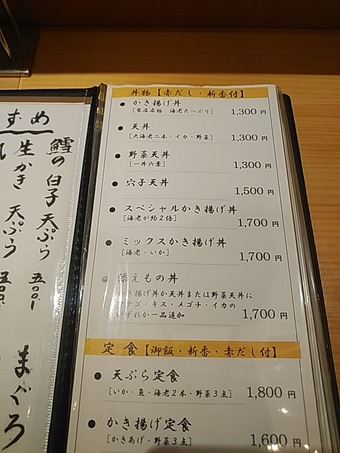 丼物【赤だし・新香付】
かき揚げ丼
1,300円
天丼
[大海老二本・イカ・野菜]
1,300円
野菜天丼
[一丼六菜]
1,300円
穴子天丼
1,500円
スペシャルかき揚げ丼
[海老が約2倍]
1,700円
ミックスかき揚げ丼
[海老・いか]
1,700円
添えもの丼
き揚げ丼か天丼または野菜天丼に
ナゴ・キス・メゴチ・イカの
いずれか一品追加
1,700円
定食【御飯・新香・赤だし付】
天ぷら定食
[いか・魚・海老2本・野菜3点]
1,800円
かき揚げ定食
[かきあげ・野菜3点]
1,600円
すめ
鱈の白子天ぷら
生かき天ぷら
まぐろ